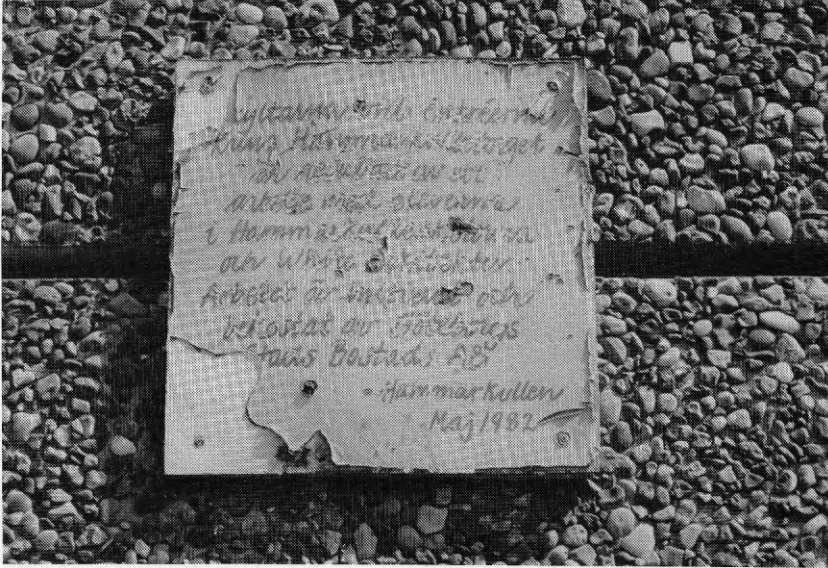 Skyltarna vid entréerna
kring Hammarkulletorget
är resultat av ett
arbete med eleverna
i Hammarkulleskolorna
och White Arkitekter.
Arbetet är initierat och
bekostat av Göteborgs
Stads Bostads AB
Hammarkullen
Maj 1982